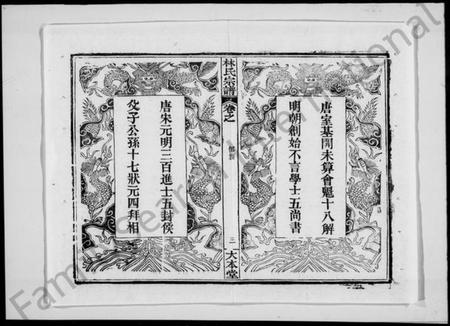 唐室基開未算會魁十八解
明朝創始不言學士五尚書
林氏宗譜
卷之
三
大本堂
唐宋元明三百進士五封侯
父子公孫十七狀元四拜相
FamilySearch International